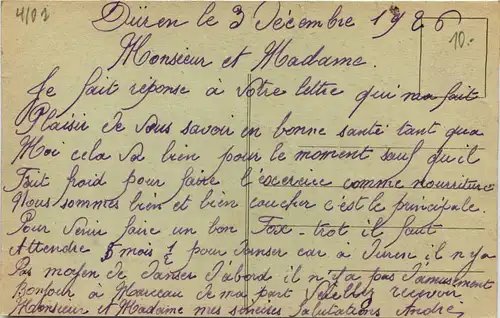 4/02
10.-
Düren le 3 Décembre 1926
Monsieur et Madame.
Je fait réponse à votre lettre qui ma fait
Plaisir de vous savoir en bonne santé tant qua
Moi cela va bien pour le moment sauf qu'il
Fait froid pour faire l'exercice comme nourriture
Nous sommes bien et bien coucher c'est le principale.
Pour venir faire un bon Fox-trot il faut
Attendre 5 mois 1/2 pour danser car à Duren il n'y a
Pas moyen de danser d'abord il n'y a pas d'amusement
Bonjour à Marceau de ma part Veuillez recevoir
Monsieur et Madame mes sincères Salutations André